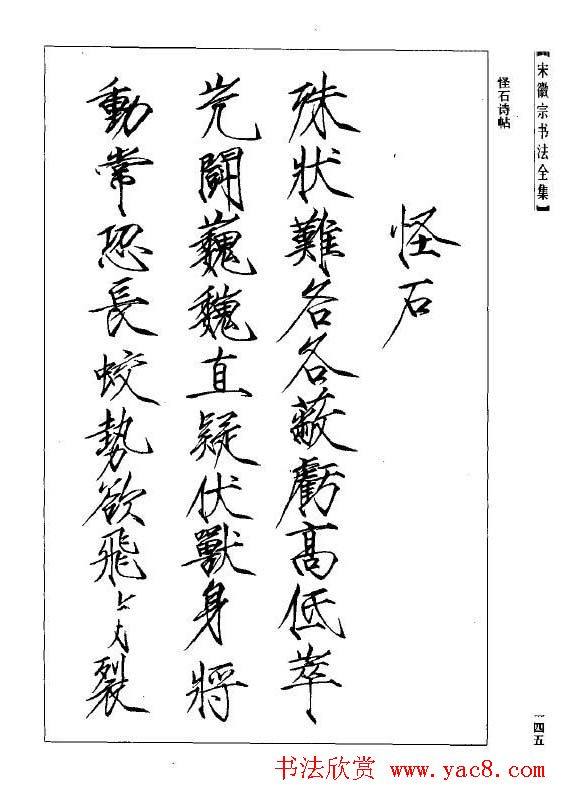 【宋徽宗书法全集】
怪石诗帖
怪石
殊狀難名各蔽虧高低崒
屼鬪巍巍直疑伏獸身將
動常恐長蛟勢欲飛裂
一四五
书法欣赏 www.yac8.com